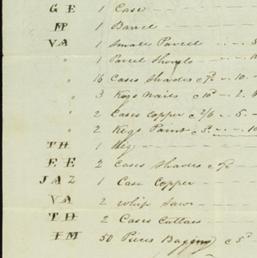 G E 1 Case
M 1 Barrel
VA 1 Small Parcel
" 1 Parcel
" 16 Cases Shades
" 3 Kegs Nails
" 2 Cases Copper 2/6 - 5 -
" 2 Kegs Paint
TH 1 Keg
EE 2 Cases Shades
JAZ 1 Case Copper
VA 2 Whip Saws
TD 2 Cases
TM 50 Pieces Bagging